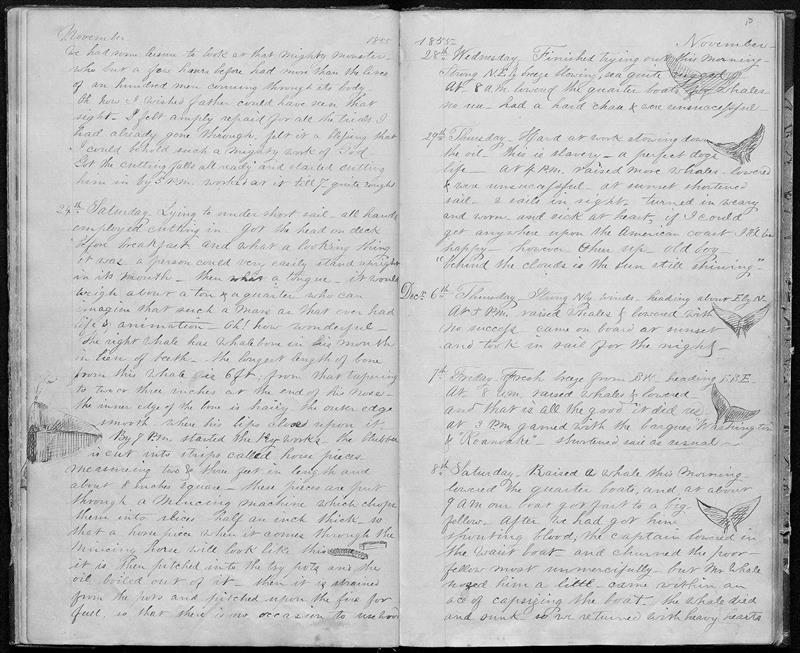 November 1855
We had some leisure to look at that mighty monster
who but a few hours before had more than the lives
of an hundred men coursing through its body
Oh how I wished father could have seen that
sight - I felt amply repaid for all the trials I
had already gone through, felt it a blessing that
I could behold such a mighty work of God.
Got the cutting falls all ready and started cutting
him in by 3 P.M. worked at it till 7 quite rough
24th Saturday. Lying to under short sail - all hands
employed cutting in - got the head on deck
before breakfast and what a looking thing
it was a person could very easily stand upright
in its mouth - then what a tongue - it would
weigh about a ton & a quarter who can
imagine that such a mass as that ever had
life & animation - Oh! how wonderful -
The right whale has whalebone in his mouth
in lieu of teeth - the longest length of bone
from this whale is 6 ft. from that tapering
to two or three inches at the end of his nose -
the inner edge of the bone is hairy the outer edge
smooth when his lips close upon it -
By 7 P.M. started the try works - the blubber
is cut into strips called horse pieces
measuring two & three feet in length and
about 8 inches square - these pieces are put
through a mincing machine which chops
them into slices half an inch thick - so
that a horse piece when it comes through the
mincing horse will look like this
it is then pitched into the try pots and the
oil boiled out of it - then it is strained
from the pots and pitched upon the fire for
fuel, so that there is no occasion to use wood
1855 November -
28th Wednesday Finished trying out this morning -
Strong N.E.ly breeze blowing, sea quite rugged
At 8 a.m. lowered the quarter boats for whales
no sea - had a hard chase & were unsuccessful -
29th Thursday - Hard at work stowing down
the oil - this is slavery - a perfect dogs
life - at 4 P.M. raised more whales - lowered
& were unsuccessful - at sunset shortened
sail - 2 sails in sight - turned in weary
and worn and sick at heart, if I could
get anywhere upon the American coast I'd be
happy - however cheer up - old boy -
"behind the clouds is the sun still shining" -
Decr 6th Thursday - Strong Nly winds - heading about E by N -
At 2 P.M. raised whales & lowered with
no success - came on board at sunset
and took in sail for the night -
7th Friday - Fresh breeze from heading
At 8 a.m. raised whales & lowered
and that is all the good it did us
at 3 P.M. gamed with the barques Washington
& "Roanoake" - shortened sail as usual -
8th Saturday - Raised a whale this morning -
lowered the quarter boats, and at about
9 am our boat got fast to a big
fellow - after we had got him
spouting blood, the captain lowered in
the waist boat and churned the poor
fellow most unmercifully - but Mr Whale
him a little - came within an
ace of capsizing the boat - the whale died
and sunk so we returned with heavy hearts